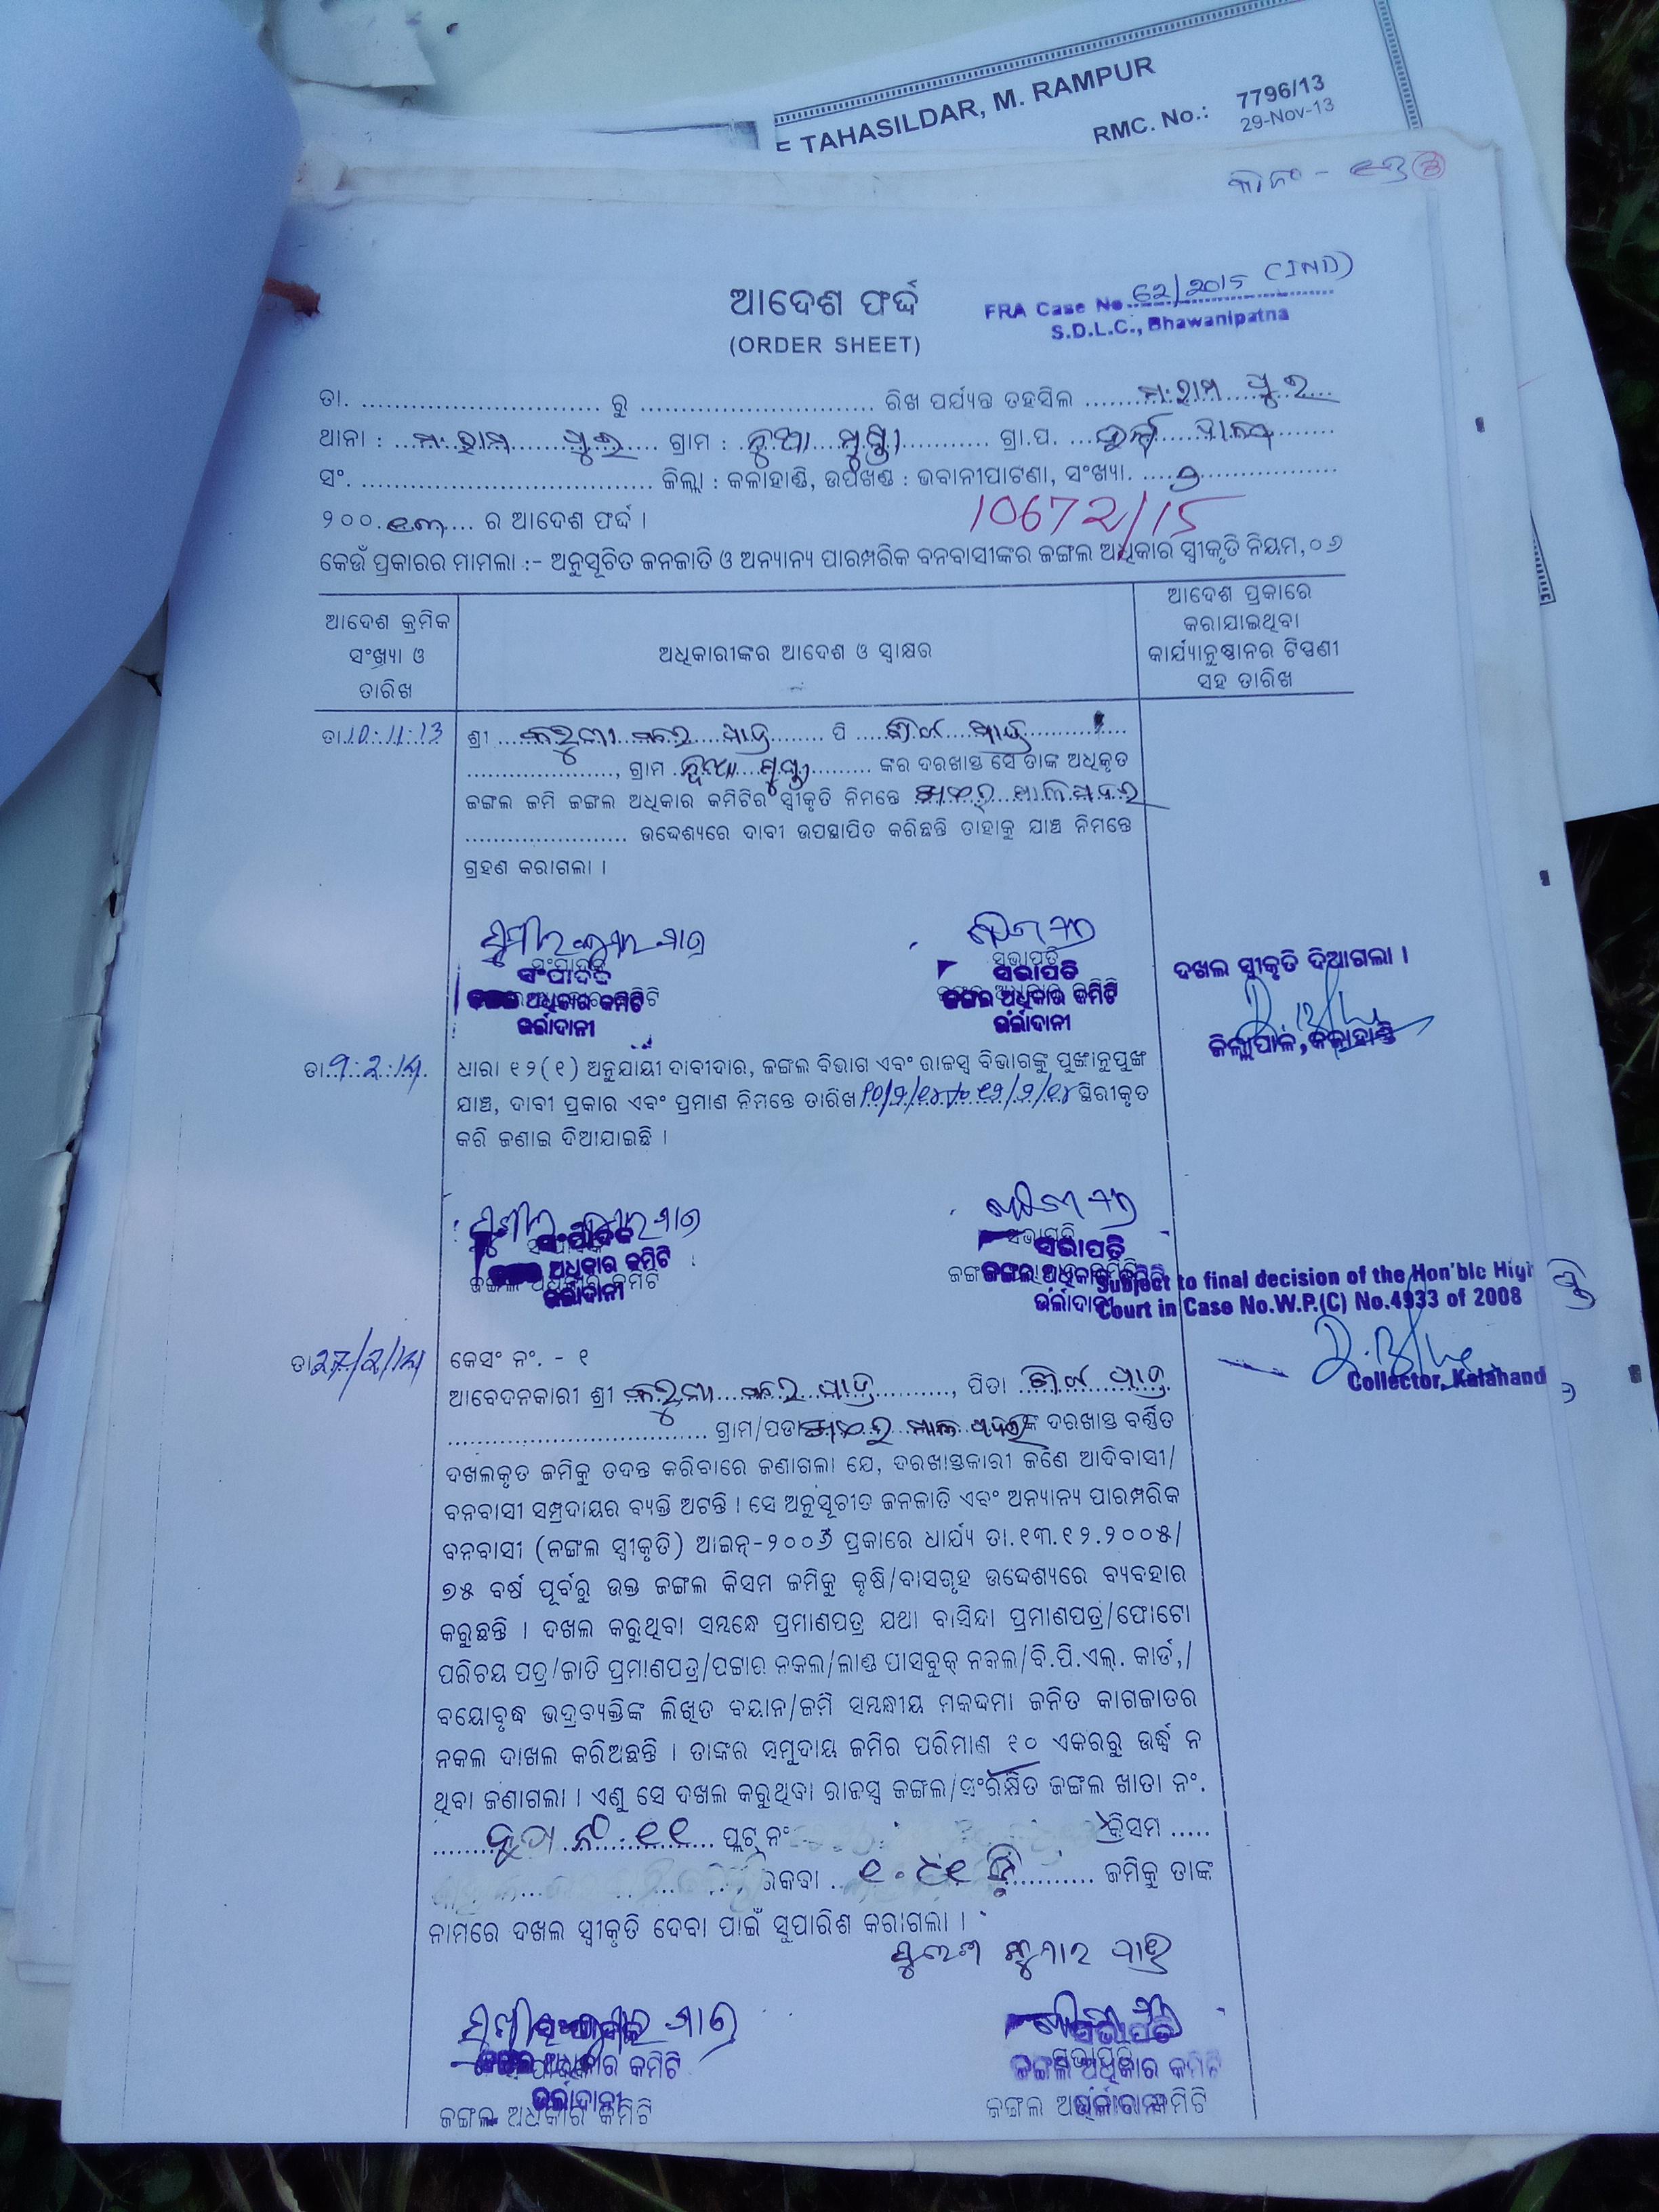 E TAHASILDAR, M. RAMPUR
RMC. No.: 7796/13
29-Nov-13
ଆଦେଶ ଫର୍ଦ୍ଦ
(ORDER SHEET)
FRA Case No 62/2015 (IND)
S.D.L.C., Bhawanipatna
ତା. .......... ରୁ .......... ରିଖ ପର୍ଯ୍ୟନ୍ତ ତହସିଲ ମ. ରାମ ପୁର
ଥାନା : ମ. ରାମ ପୁର ଗ୍ରାମ : ନୁଆ ଗ୍ରା.ପ.
ସଂ. .......... ଜିଲ୍ଲା : କଳାହାଣ୍ଡି, ଉପଖଣ୍ଡ : ଭବାନୀପାଟଣା, ସଂଖ୍ୟା.
୨୦୦.୧୩.... ର ଆଦେଶ ଫର୍ଦ୍ଦ ।
10672/15
କେଉଁ ପ୍ରକାରର ମାମଲା :- ଅନୁସୂଚିତ ଜନଜାତି ଓ ଅନ୍ୟାନ୍ୟ ପାରମ୍ପରିକ ବନବାସୀଙ୍କର ଜଙ୍ଗଲ ଅଧିକାର ସ୍ୱୀକୃତି ନିୟମ,୦୬
ଆଦେଶ କ୍ରମିକ
ସଂଖ୍ୟା ଓ
ତାରିଖ
ଅଧିକାରୀଙ୍କର ଆଦେଶ ଓ ସ୍ୱାକ୍ଷର
ଆଦେଶ ପ୍ରକାରେ
କରାଯାଇଥିବା
କାର୍ଯ୍ୟାନୁଷ୍ଠାନର ଟିପ୍ପଣୀ
ସହ ତାରିଖ
ତା.10.11.13
ଶ୍ରୀ ପି
.........., ଗ୍ରାମ ନୁଆ ଙ୍କର ଦରଖାସ୍ତ ସେ ତାଙ୍କ ଅଧିକୃତ
ଜଙ୍ଗଲ ଜମି ଜଙ୍ଗଲ ଅଧିକାର କମିଟିର ସ୍ୱୀକୃତି ନିମନ୍ତେ
.......... ଉଦ୍ଦେଶ୍ୟରେ ଦାବୀ ଉପସ୍ଥାପିତ କରିଛନ୍ତି ତାହାକୁ ଯାଞ୍ଚ ନିମନ୍ତେ
ଗ୍ରହଣ କରାଗଲା ।
ସଂପାଦକ
ଅଧିକାର କମିଟି
ଉର୍ଲାଦାନୀ
ସଭାପତି
ଜଙ୍ଗଲ ଅଧିକାର କମିଟି
ଉର୍ଲାଦାନୀ
ଦଖଲ ସ୍ୱୀକୃତି ଦିଆଗଲା ।
ଜିଲ୍ଲାପାଳ, କଳାହାଣ୍ଡି
ତା.9.2.14
ଧାରା ୧୨(୧) ଅନୁଯାୟୀ ଦାବୀଦାର, ଜଙ୍ଗଲ ବିଭାଗ ଏବଂ ରାଜସ୍ୱ ବିଭାଗଙ୍କୁ ପୁଙ୍ଖାନୁପୁଙ୍ଖ
ଯାଞ୍ଚ, ଦାବୀ ପ୍ରକାର ଏବଂ ପ୍ରମାଣ ନିମନ୍ତେ ତାରିଖ ସ୍ଥିରୀକୃତ
କରି ଜଣାଇ ଦିଆଯାଇଛି ।
ସଂପାଦକ
ଅଧିକାର କମିଟି
ଉର୍ଲାଦାନୀ
ସଭାପତି
ଜଙ୍ଗଲ ଅଧିକାର କମିଟି
ଉର୍ଲାଦାନୀ
Subject to final decision of the Hon'ble High
Court in Case No.W.P.(C) No.4933 of 2008
Collector, Kalahand
ତା.27/2/14
କେସଂ ନଂ. - ୧
ଆବେଦନକାରୀ ଶ୍ରୀ , ପିତା
.......... ଗ୍ରାମ/ପଡା ଙ୍କ ଦରଖାସ୍ତ ବର୍ଣ୍ଣିତ
ଦଖଲକୃତ ଜମିକୁ ତଦନ୍ତ କରିବାରେ ଜଣାଗଲା ଯେ, ଦରଖାସ୍ତକାରୀ ଜଣେ ଆଦିବାସୀ/
ବନବାସୀ ସମ୍ପ୍ରଦାୟର ବ୍ୟକ୍ତି ଅଟନ୍ତି । ସେ ଅନୁସୂଚୀତ ଜନଜାତି ଏବଂ ଅନ୍ୟାନ୍ୟ ପାରମ୍ପରିକ
ବନବାସୀ (ଜଙ୍ଗଲ ସ୍ୱୀକୃତି) ଆଇନ୍-୨୦୦୬ ପ୍ରକାରେ ଧାର୍ଯ୍ୟ ତା.୧୩.୧୨.୨୦୦୫/
୭୫ ବର୍ଷ ପୂର୍ବରୁ ଉକ୍ତ ଜଙ୍ଗଲ କିସମ ଜମିକୁ କୃଷି/ବାସଗୃହ ଉଦ୍ଦେଶ୍ୟରେ ବ୍ୟବହାର
କରୁଛନ୍ତି । ଦଖଲ କରୁଥିବା ସମ୍ବନ୍ଧେ ପ୍ରମାଣପତ୍ର ଯଥା ବାସିନ୍ଦା ପ୍ରମାଣପତ୍ର/ଫୋଟୋ
ପରିଚୟ ପତ୍ର/ଜାତି ପ୍ରମାଣପତ୍ର/ପଟ୍ଟାର ନକଲ/ଲାଣ୍ଡ ପାସବୁକ୍ ନକଲ/ବି.ପି.ଏଲ୍. କାର୍ଡ,/
ବୟୋବୃଦ୍ଧ ଭଦ୍ରବ୍ୟକ୍ତିଙ୍କ ଲିଖିତ ବୟାନ/ଜମି ସମ୍ବନ୍ଧୀୟ ମକଦ୍ଦମା ଜନିତ କାଗଜାତର
ନକଲ ଦାଖଲ କରିଅଛନ୍ତି । ତାଙ୍କର ସମୁଦାୟ ଜମିର ପରିମାଣ ୧୦ ଏକରରୁ ଉର୍ଦ୍ଧ୍ୱ ନ
ଥିବା ଜଣାଗଲା । ଏଣୁ ସେ ଦଖଲ କରୁଥିବା ରାଜସ୍ୱ ଜଙ୍ଗଲ/ସଂରକ୍ଷିତ ଜଙ୍ଗଲ ଖାତା ନଂ.
ନଂ. ୧୧ ପ୍ଲଟ୍ ନଂ କିସମ .....
ରକବା ଜମିକୁ ତାଙ୍କ
ନାମରେ ଦଖଲ ସ୍ୱୀକୃତି ଦେବା ପାଇଁ ସୁପାରିଶ କରାଗଲା ।
ଅଧିକାର କମିଟି
ଉର୍ଲାଦାନୀ
ଜଙ୍ଗଲ ଅଧିକାର କମିଟି
ସଭାପତି
ଜଙ୍ଗଲ ଅଧିକାର କମିଟି